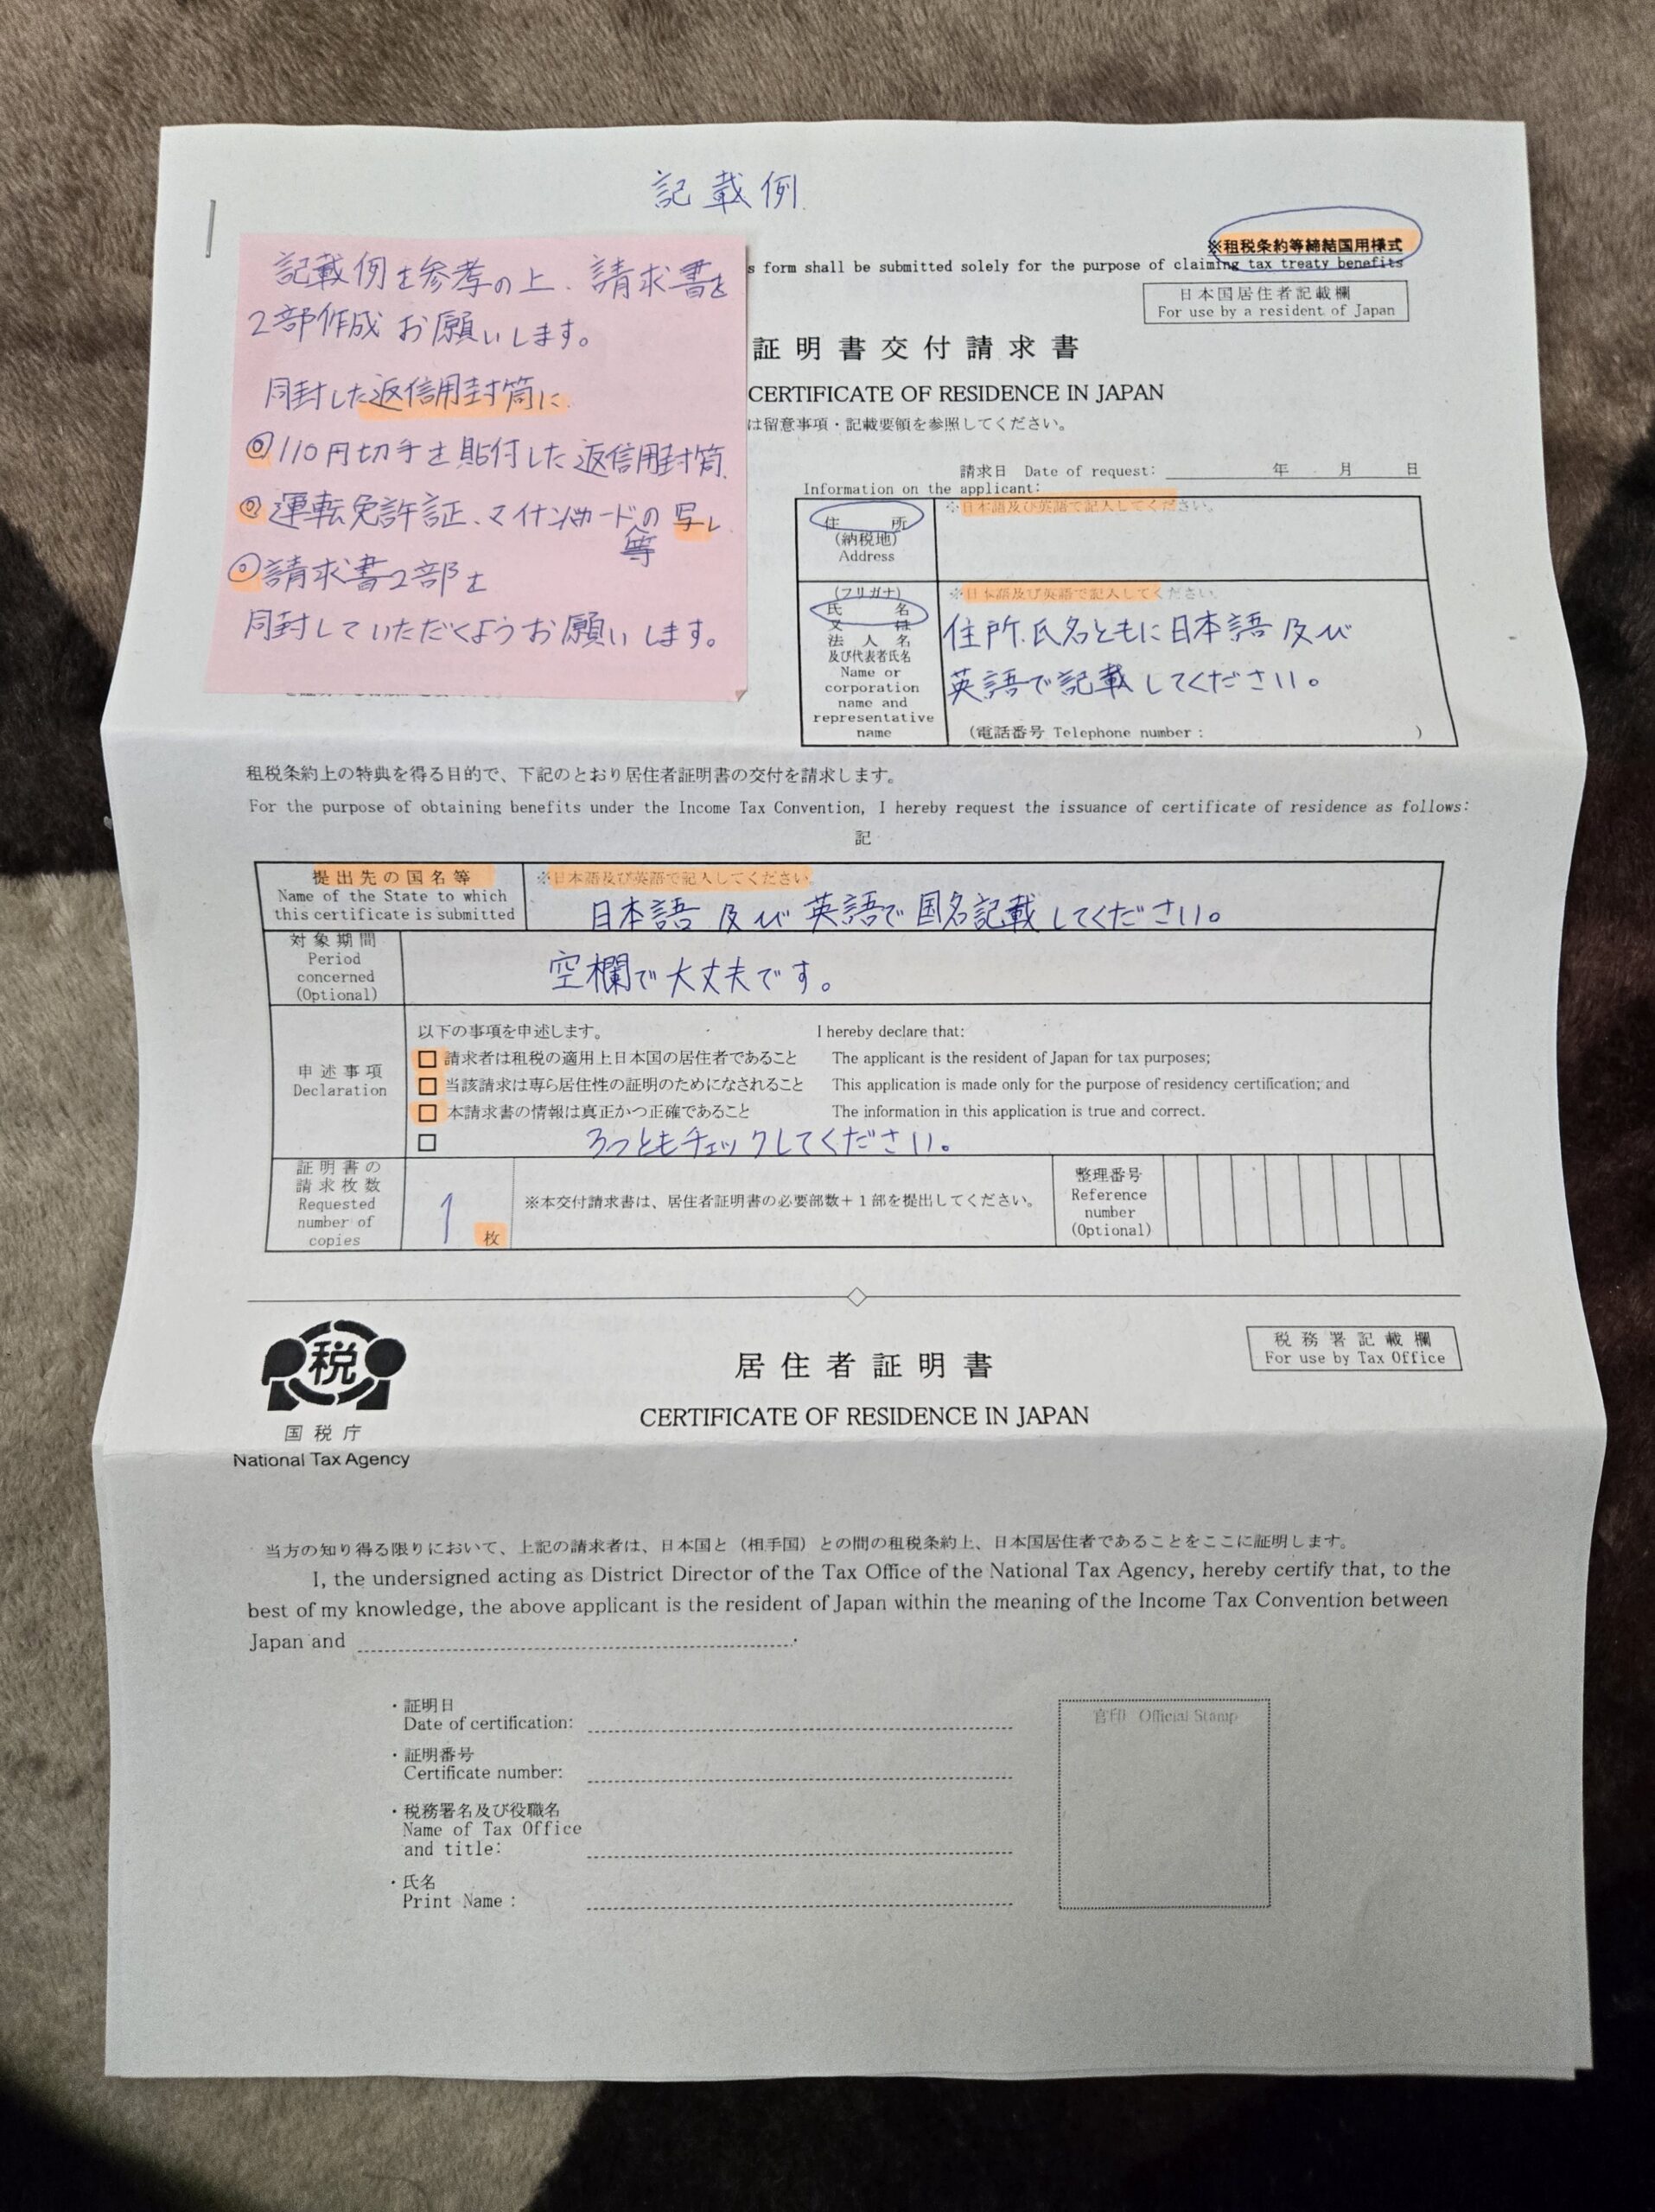 記載例
記載例を参考の上、請求書を
2部作成お願いします。
同封した返信用封筒に
◎110円切手を貼付した返信用封筒
◎運転免許証、マイナンバーカードの写し
等
◎請求書2部を
同封していただくようお願いします。
※租税条約等締結国用様式
s form shall be submitted solely for the purpose of claiming tax treaty benefits
日本国居住者記載欄
For use by a resident of Japan
証明書交付請求書
CERTIFICATE OF RESIDENCE IN JAPAN
は留意事項・記載要領を参照してください。
請求日 Date of request: 年 月 日
Information on the applicant:
住所
(納税地)
Address
※日本語及び英語で記入してください。
(フリガナ)
氏名
又は
法人名
及び代表者氏名
Name or
corporation
name and
representative
name
※日本語及び英語で記入してください。
住所、氏名ともに日本語及び
英語で記載してください。
(電話番号 Telephone number: )
租税条約上の特典を得る目的で、下記のとおり居住者証明書の交付を請求します。
For the purpose of obtaining benefits under the Income Tax Convention, I hereby request the issuance of certificate of residence as follows:
記
提出先の国名等
Name of the State to which
this certificate is submitted
※日本語及び英語で記入してください。
日本語及び英語で国名記載してください。
対象期間
Period
concerned
(Optional)
空欄で大丈夫です。
申述事項
Declaration
以下の事項を申述します。 I hereby declare that:
□請求者は租税の適用上日本国の居住者であること The applicant is the resident of Japan for tax purposes;
□当該請求は専ら居住性の証明のためになされること This application is made only for the purpose of residency certification; and
□本請求書の情報は真正かつ正確であること The information in this application is true and correct.
□
3つともチェックしてください。
証明書の
請求枚数
Requested
number of
copies
1 枚
※本交付請求書は、居住者証明書の必要部数+1部を提出してください。
整理番号
Reference
number
(Optional)
税
国税庁
National Tax Agency
居住者証明書
CERTIFICATE OF RESIDENCE IN JAPAN
税務署記載欄
For use by Tax Office
当方の知り得る限りにおいて、上記の請求者は、日本国と(相手国)との間の租税条約上、日本国居住者であることをここに証明します。
I, the undersigned acting as District Director of the Tax Office of the National Tax Agency, hereby certify that, to the
best of my knowledge, the above applicant is the resident of Japan within the meaning of the Income Tax Convention between
Japan and .
・証明日
Date of certification:
・証明番号
Certificate number:
・税務署名及び役職名
Name of Tax Office
and title:
・氏名
Print Name :
官印 Official Stamp